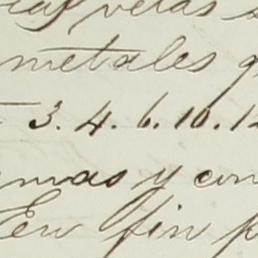 velas
metales
3. 4. 6. 10. 12
y con
En fin p